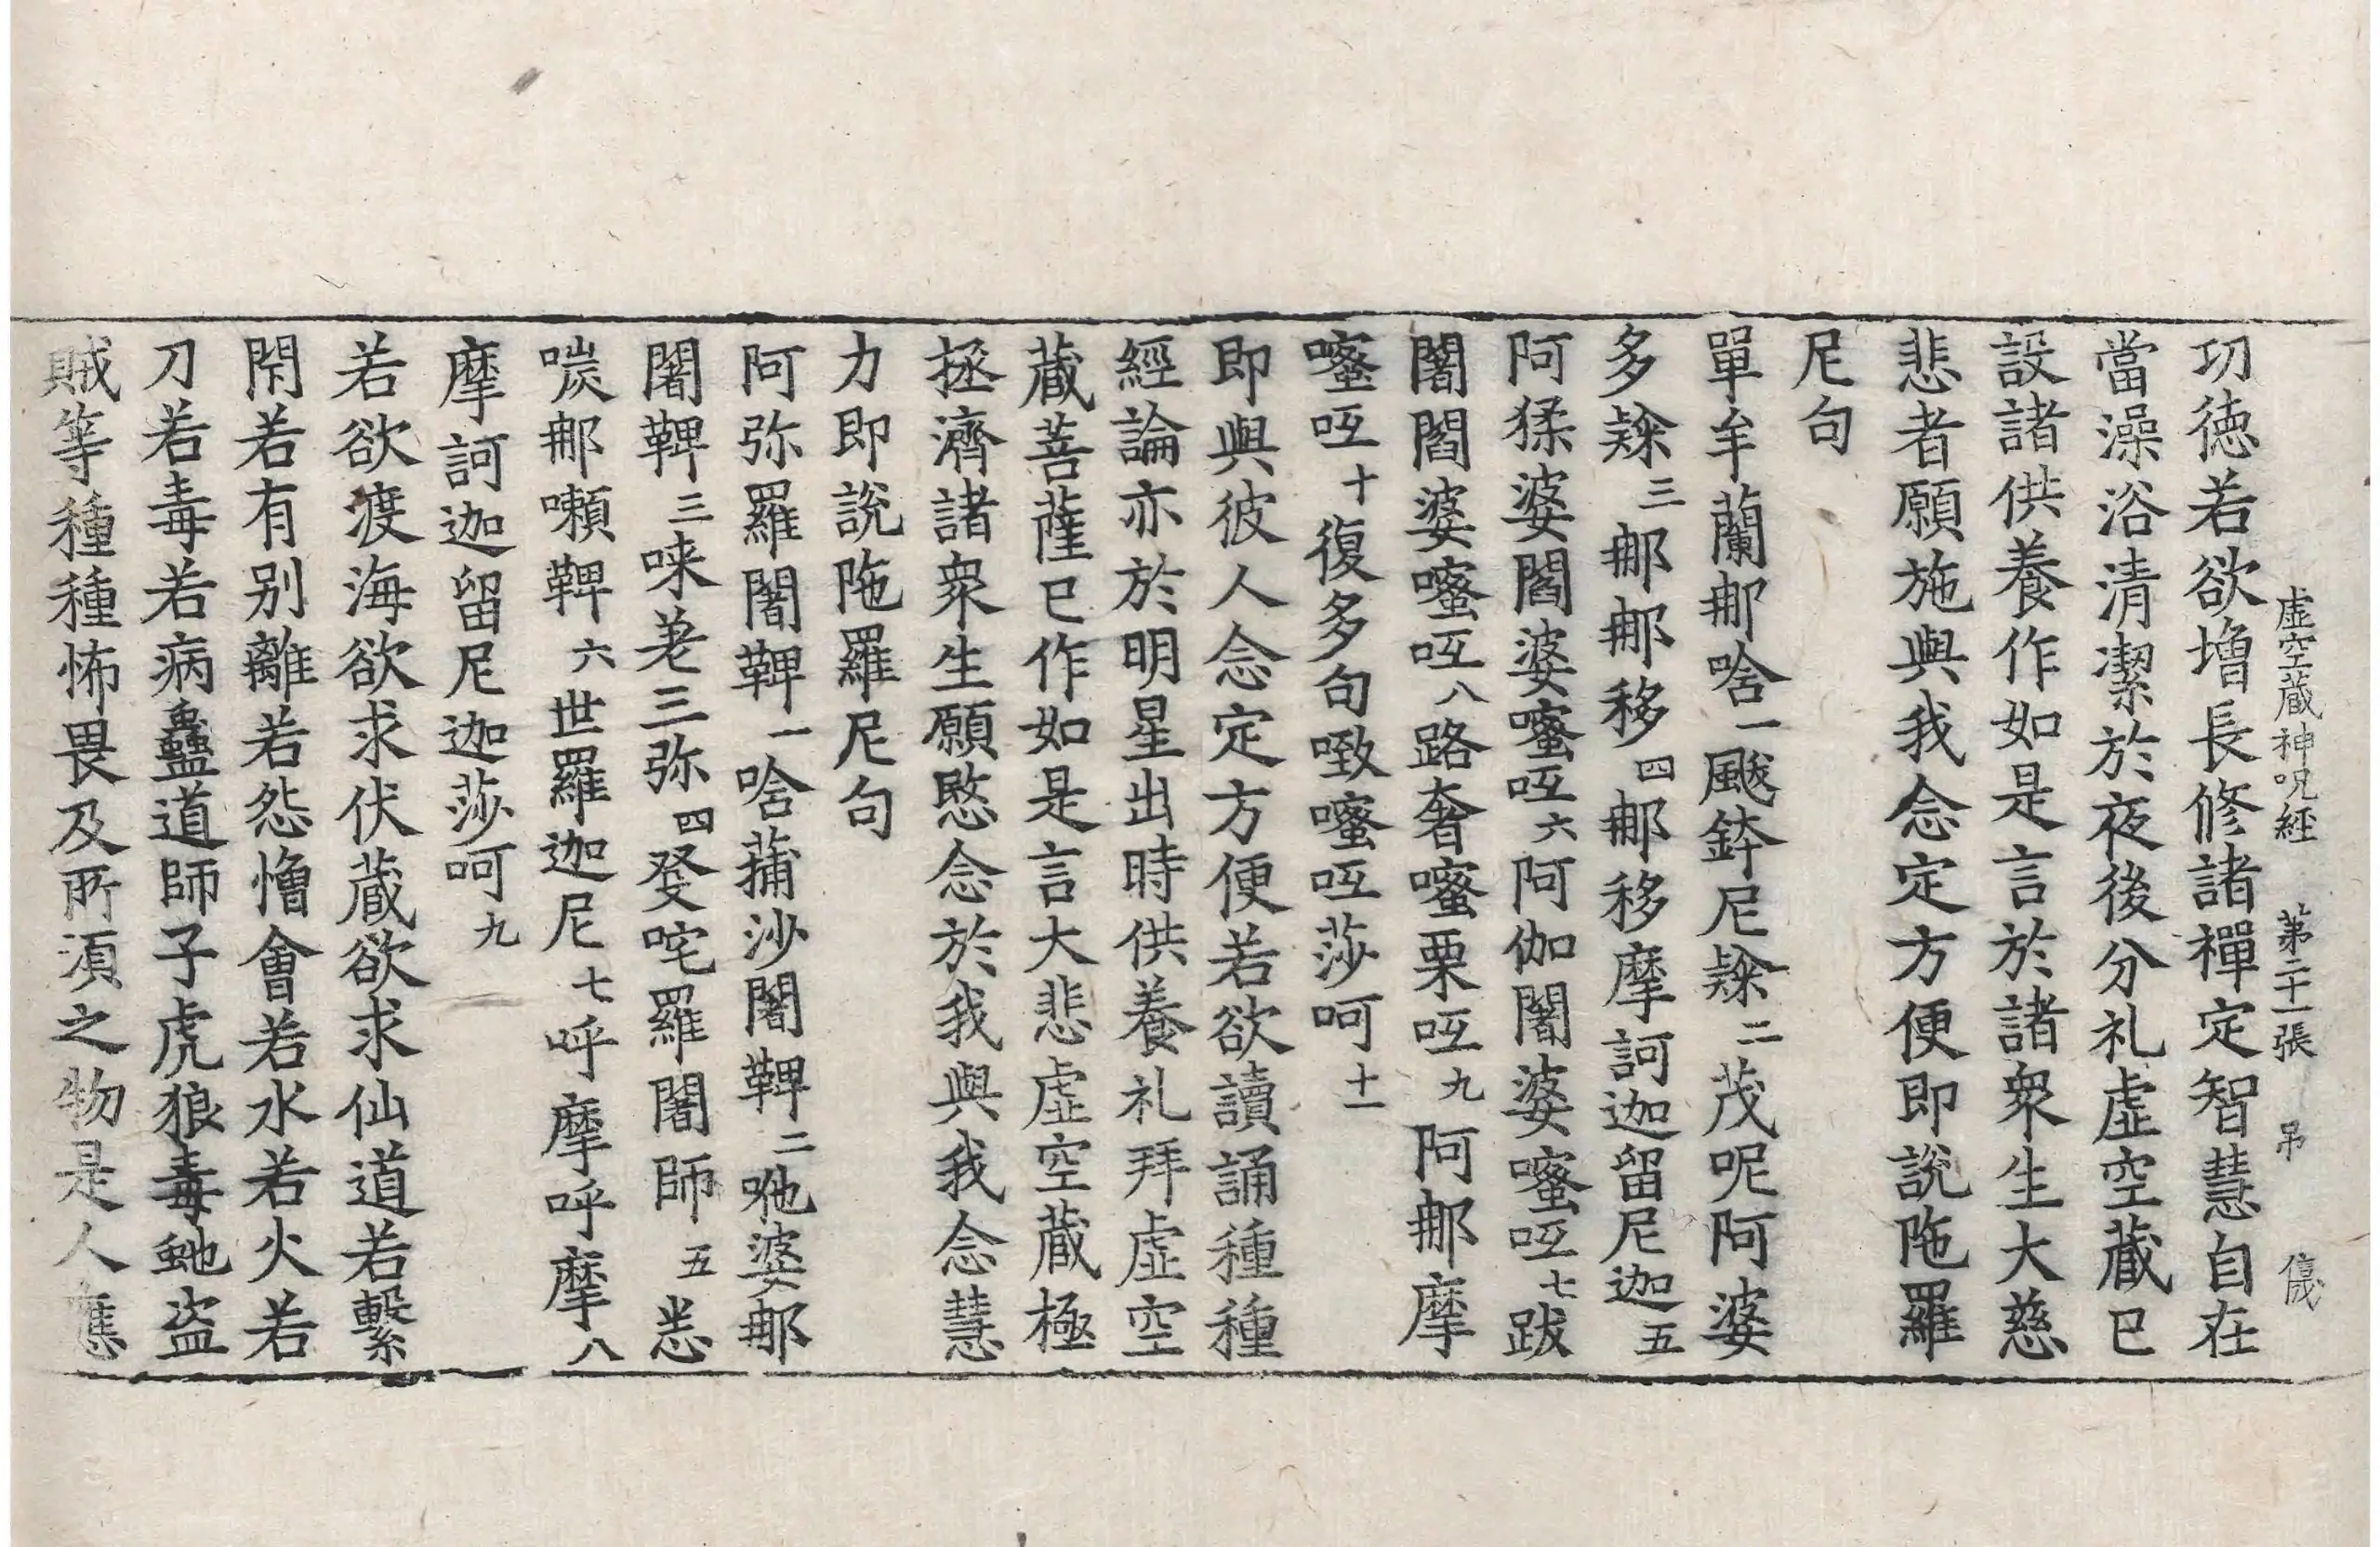 虛空藏神呪經 第二十一張 吊 儀
功德若欲增長修諸禪定智慧自在
當澡浴清潔於夜後分礼虛空藏已
設諸供養作如是言於諸衆生大慈
悲者願施與我念定方便即說陁羅
尼句
單牟蘭那唅一颰鉢尼㖨二茂呢阿婆
多㖨三那那移四那移摩訶迦留尼迦五
阿猱婆閻婆㗫㕧六阿伽闍婆㗫㕧七跋
闍閻婆㗫㕧八路奢㗫栗㕧九阿那摩
㗫㕧十復多句㗧㗫㕧莎呵十一
即與彼人念定方便若欲讀誦種種
經論亦於明星出時供養礼拜虛空
藏菩薩已作如是言大悲虛空藏極
拯濟諸衆生願愍念於我與我念慧
力即說陁羅尼句
阿弥羅闍鞞一唅蒱沙闍鞞二吔婆那
闍鞞三唻若三弥四癹咤羅闍師五恙
㗜那嚬鞞六世羅迦尼七呼摩呼摩八
摩訶迦留尼迦莎呵九
若欲渡海欲求伏藏欲求仙道若繫
閇若有別離若怨憎會若水若火若
刀若毒若病蠱道師子虎狼毒虵盜
賊等種種怖畏及所湏之物是人應